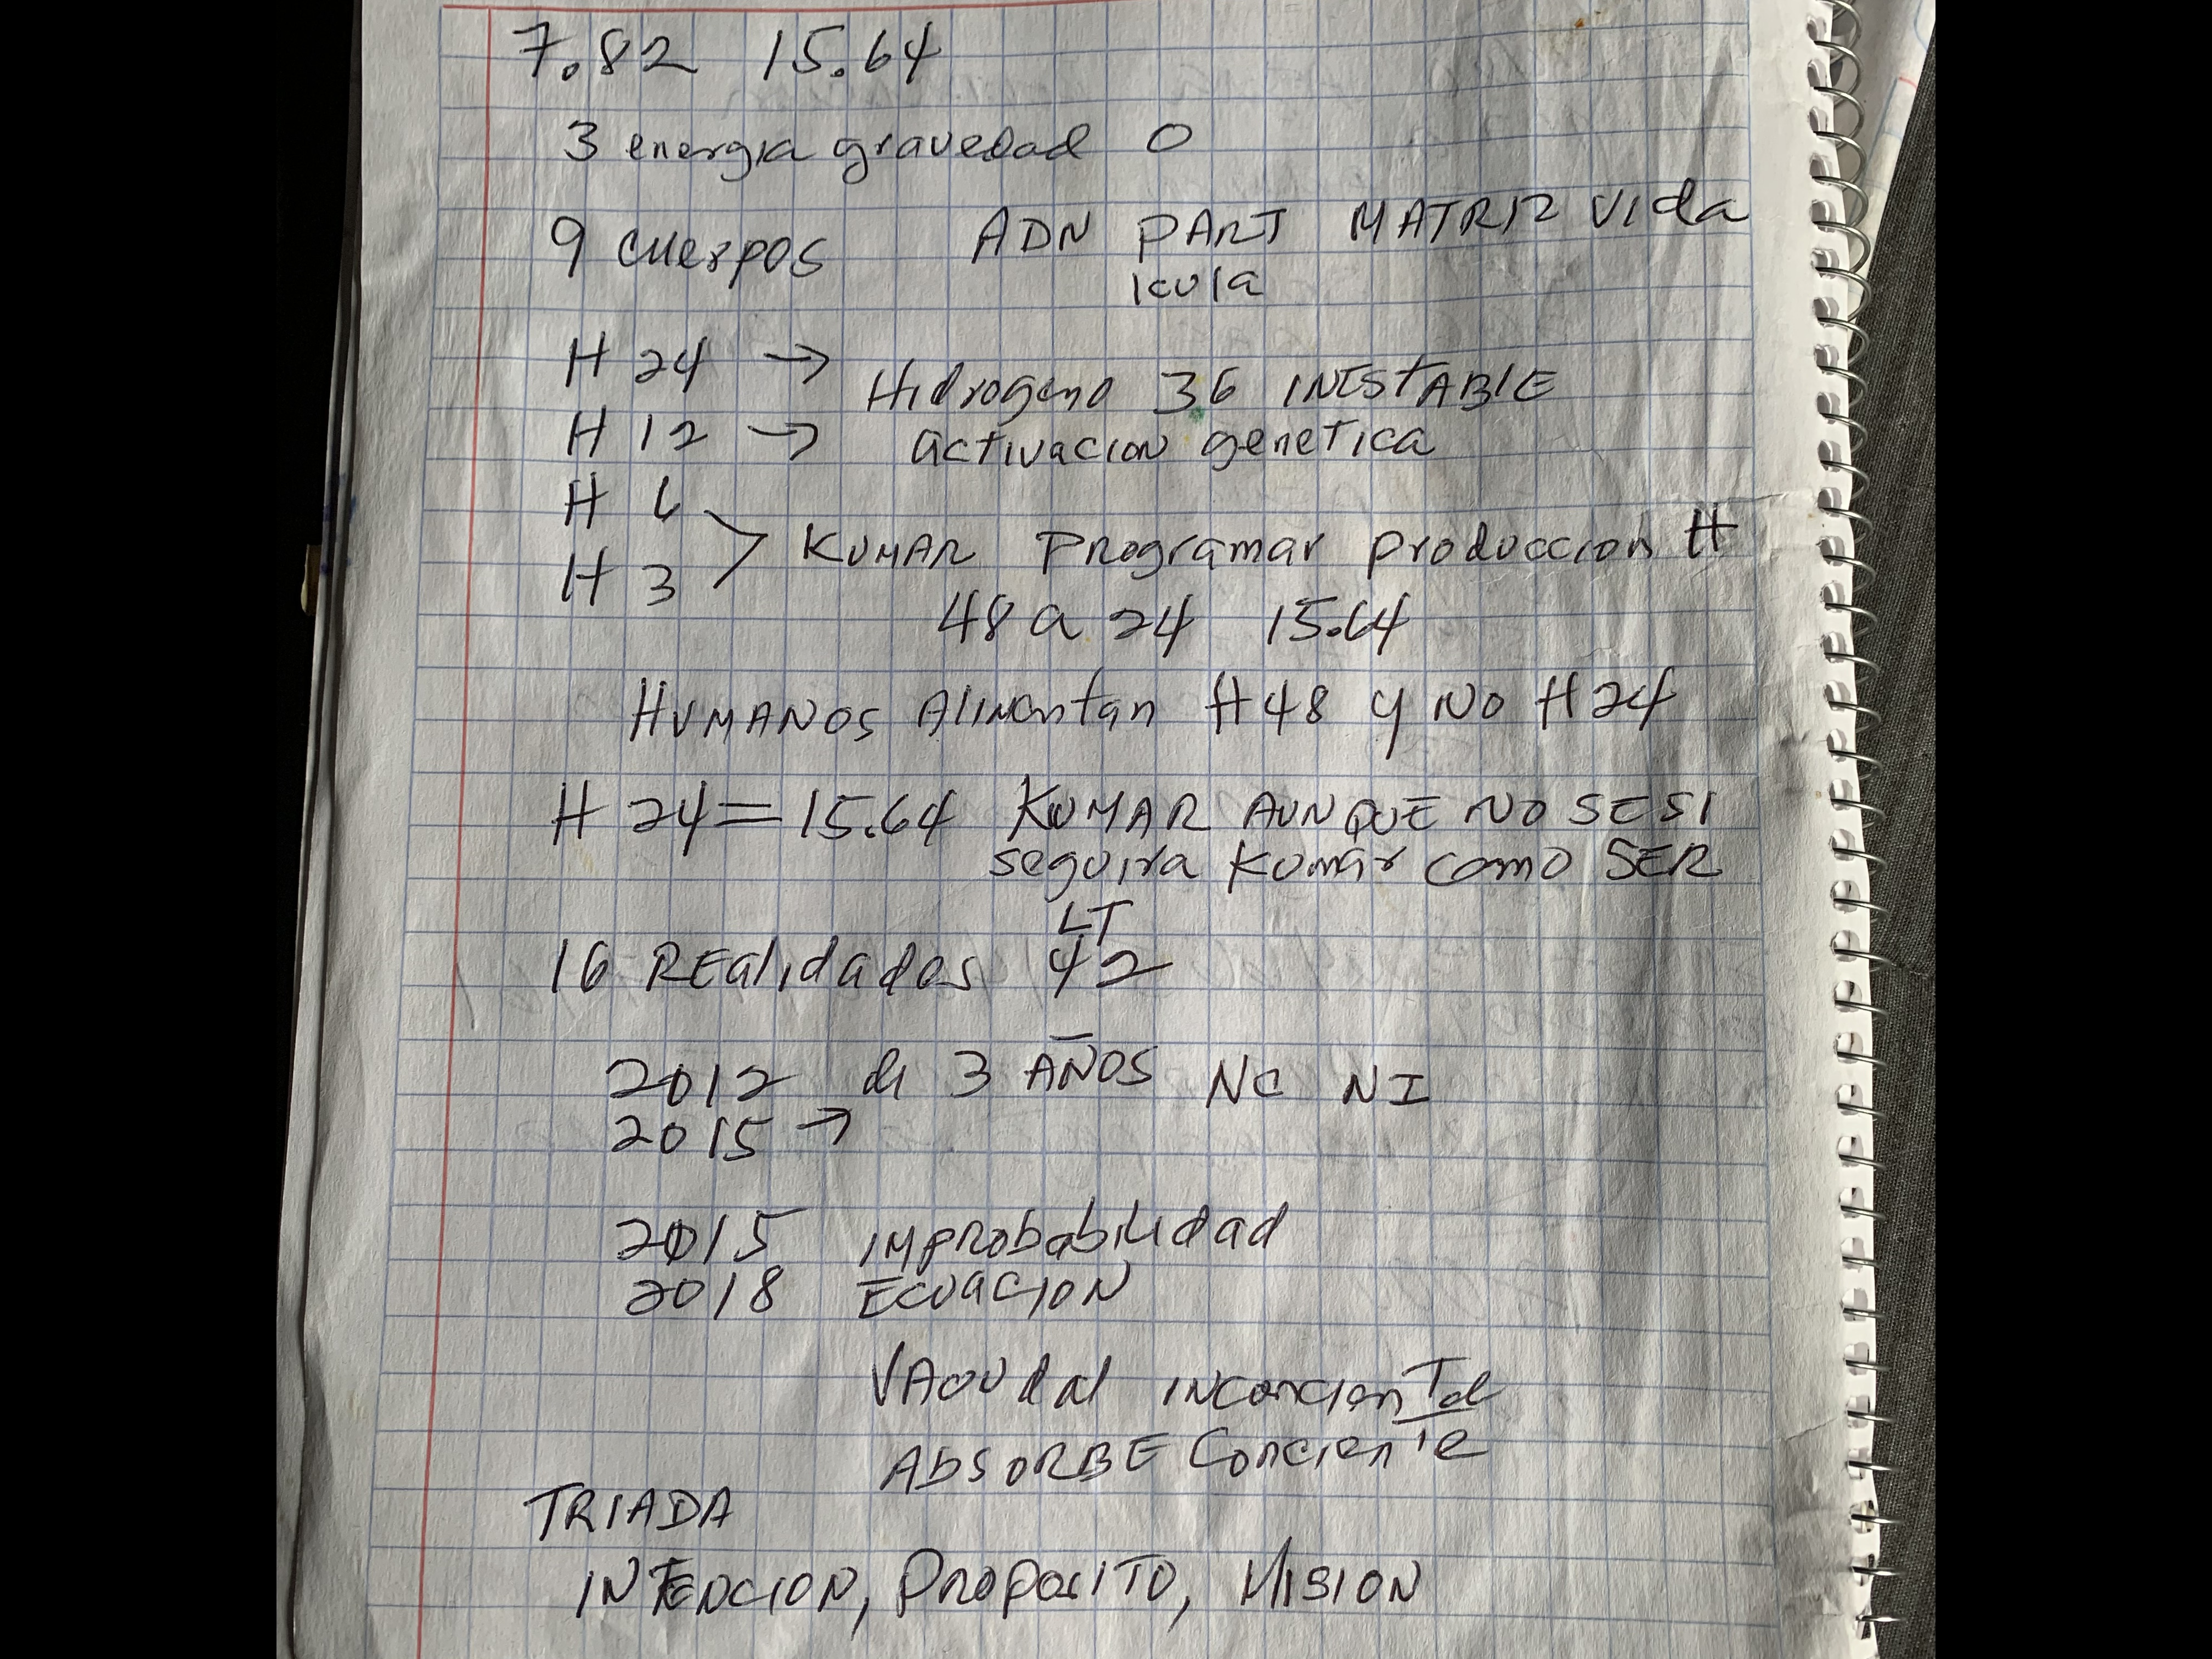 7.82 15.64
3 energia gravedad 0
9 cuerpos ADN PART MATRIZ Vida
icula
H 24 → Hidrogeno 36 INESTABLE
H 12 → activacion genetica
H 6
H 3 > KUMAR Programar produccion H
48 a 24 15.64
HUMANOS Alimentan H48 y NO H24
H 24 = 15.64 KUMAR AUNQUE NO SE SI
seguira Kumar como SER
LT
16 REalidades 42
2012 de 3 AÑOS NC NI
2015 →
2015 IMPRObabilidad
2018 ECUACION
INconciente
AbSORBE Conciente
TRIADA
INTENCION, PROPOSITO, VISION